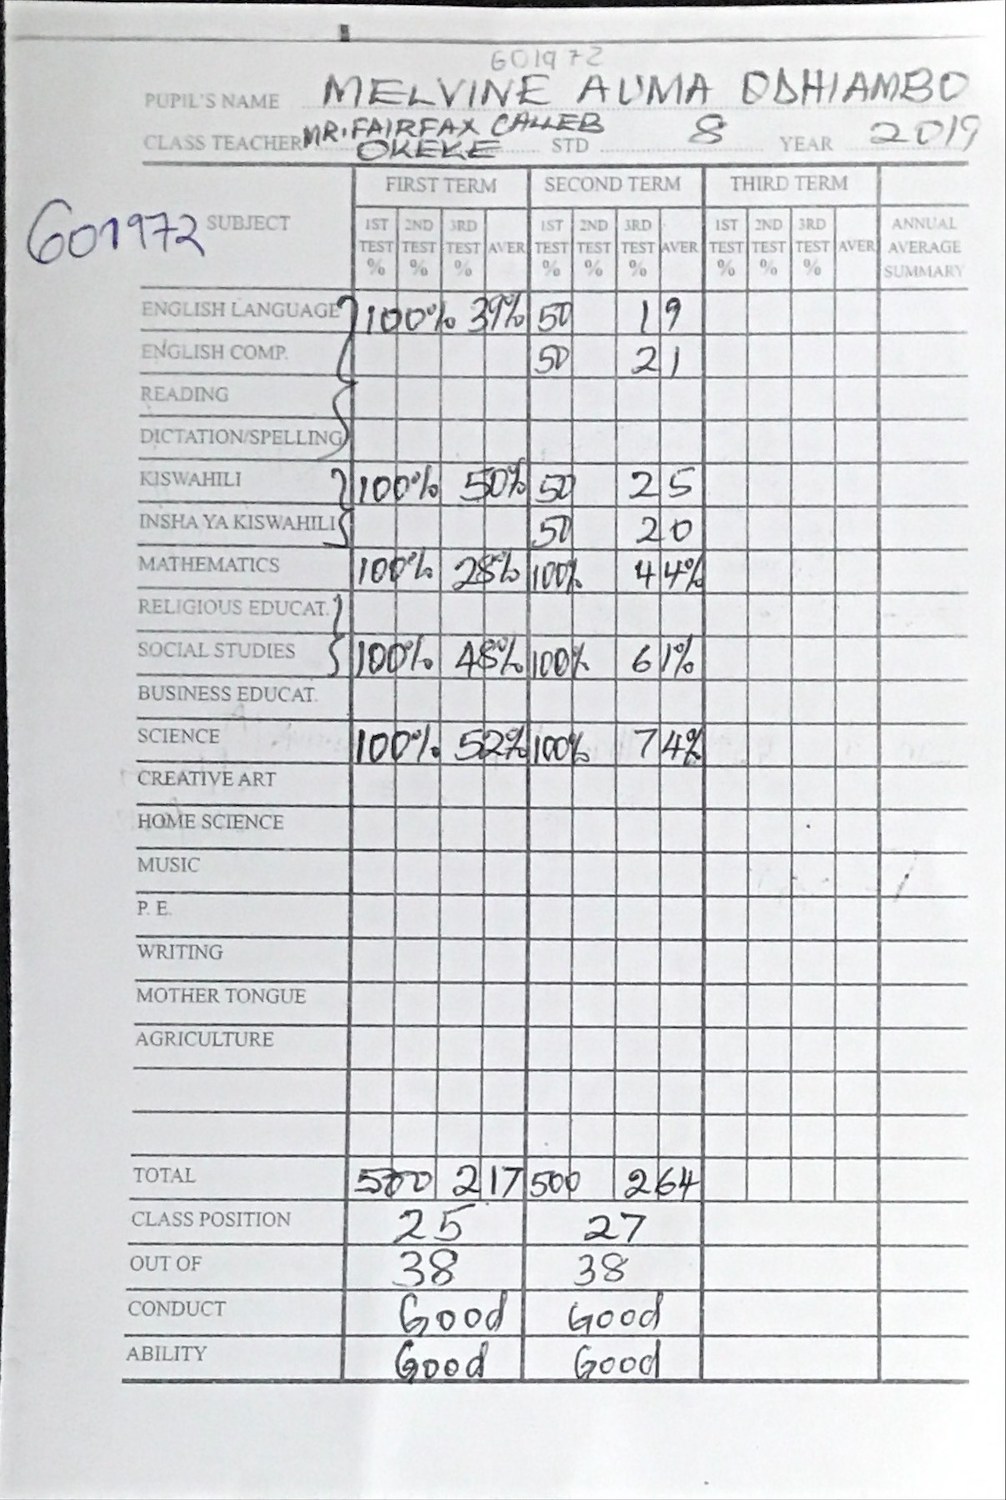 601972
PUPIL'S NAME MELVINE AUMA ODHIAMBO
CLASS TEACHER MR. FAIRFAX CALLEB OKEKE STD 8 YEAR 2019
601972
FIRST TERM SECOND TERM THIRD TERM
SUBJECT 1ST TEST % 2ND TEST % 3RD TEST % AVER 1ST TEST % 2ND TEST % 3RD TEST % AVER 1ST TEST % 2ND TEST % 3RD TEST % AVER ANNUAL AVERAGE SUMMARY
ENGLISH LANGUAGE 100% 39% 50 19
ENGLISH COMP. 50 21
READING
DICTATION/SPELLING
KISWAHILI 100% 50% 50 25
INSHA YA KISWAHILI 50 20
MATHEMATICS 100% 28% 100% 44%
RELIGIOUS EDUCAT.
SOCIAL STUDIES 100% 48% 100% 61%
BUSINESS EDUCAT.
SCIENCE 100% 52% 100% 74%
CREATIVE ART
HOME SCIENCE
MUSIC
P. E.
WRITING
MOTHER TONGUE
AGRICULTURE
TOTAL 500 217 500 264
CLASS POSITION 25 27
OUT OF 38 38
CONDUCT Good Good
ABILITY Good Good